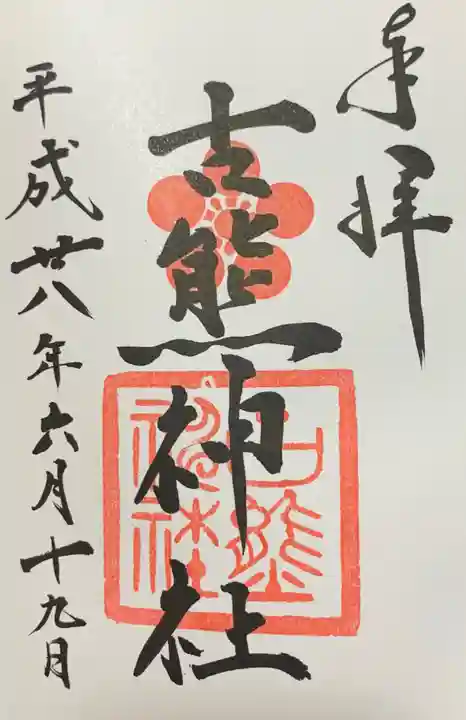 奉拝
古熊神社
平成廿八年六月十九日
古熊
神社